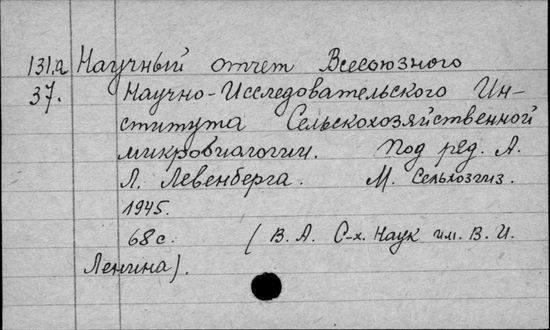 131.а Научный отчет Всесоюзного
37. Научно-Исследовательского Ин-
ститута Сельскохозяйственной
микробиалогии. Под ред. А.
Л. Левенберга. М. Сельхозгиз.
1945.
68 с. (В. А. С-х. Наук им. В. И.
Ленина).